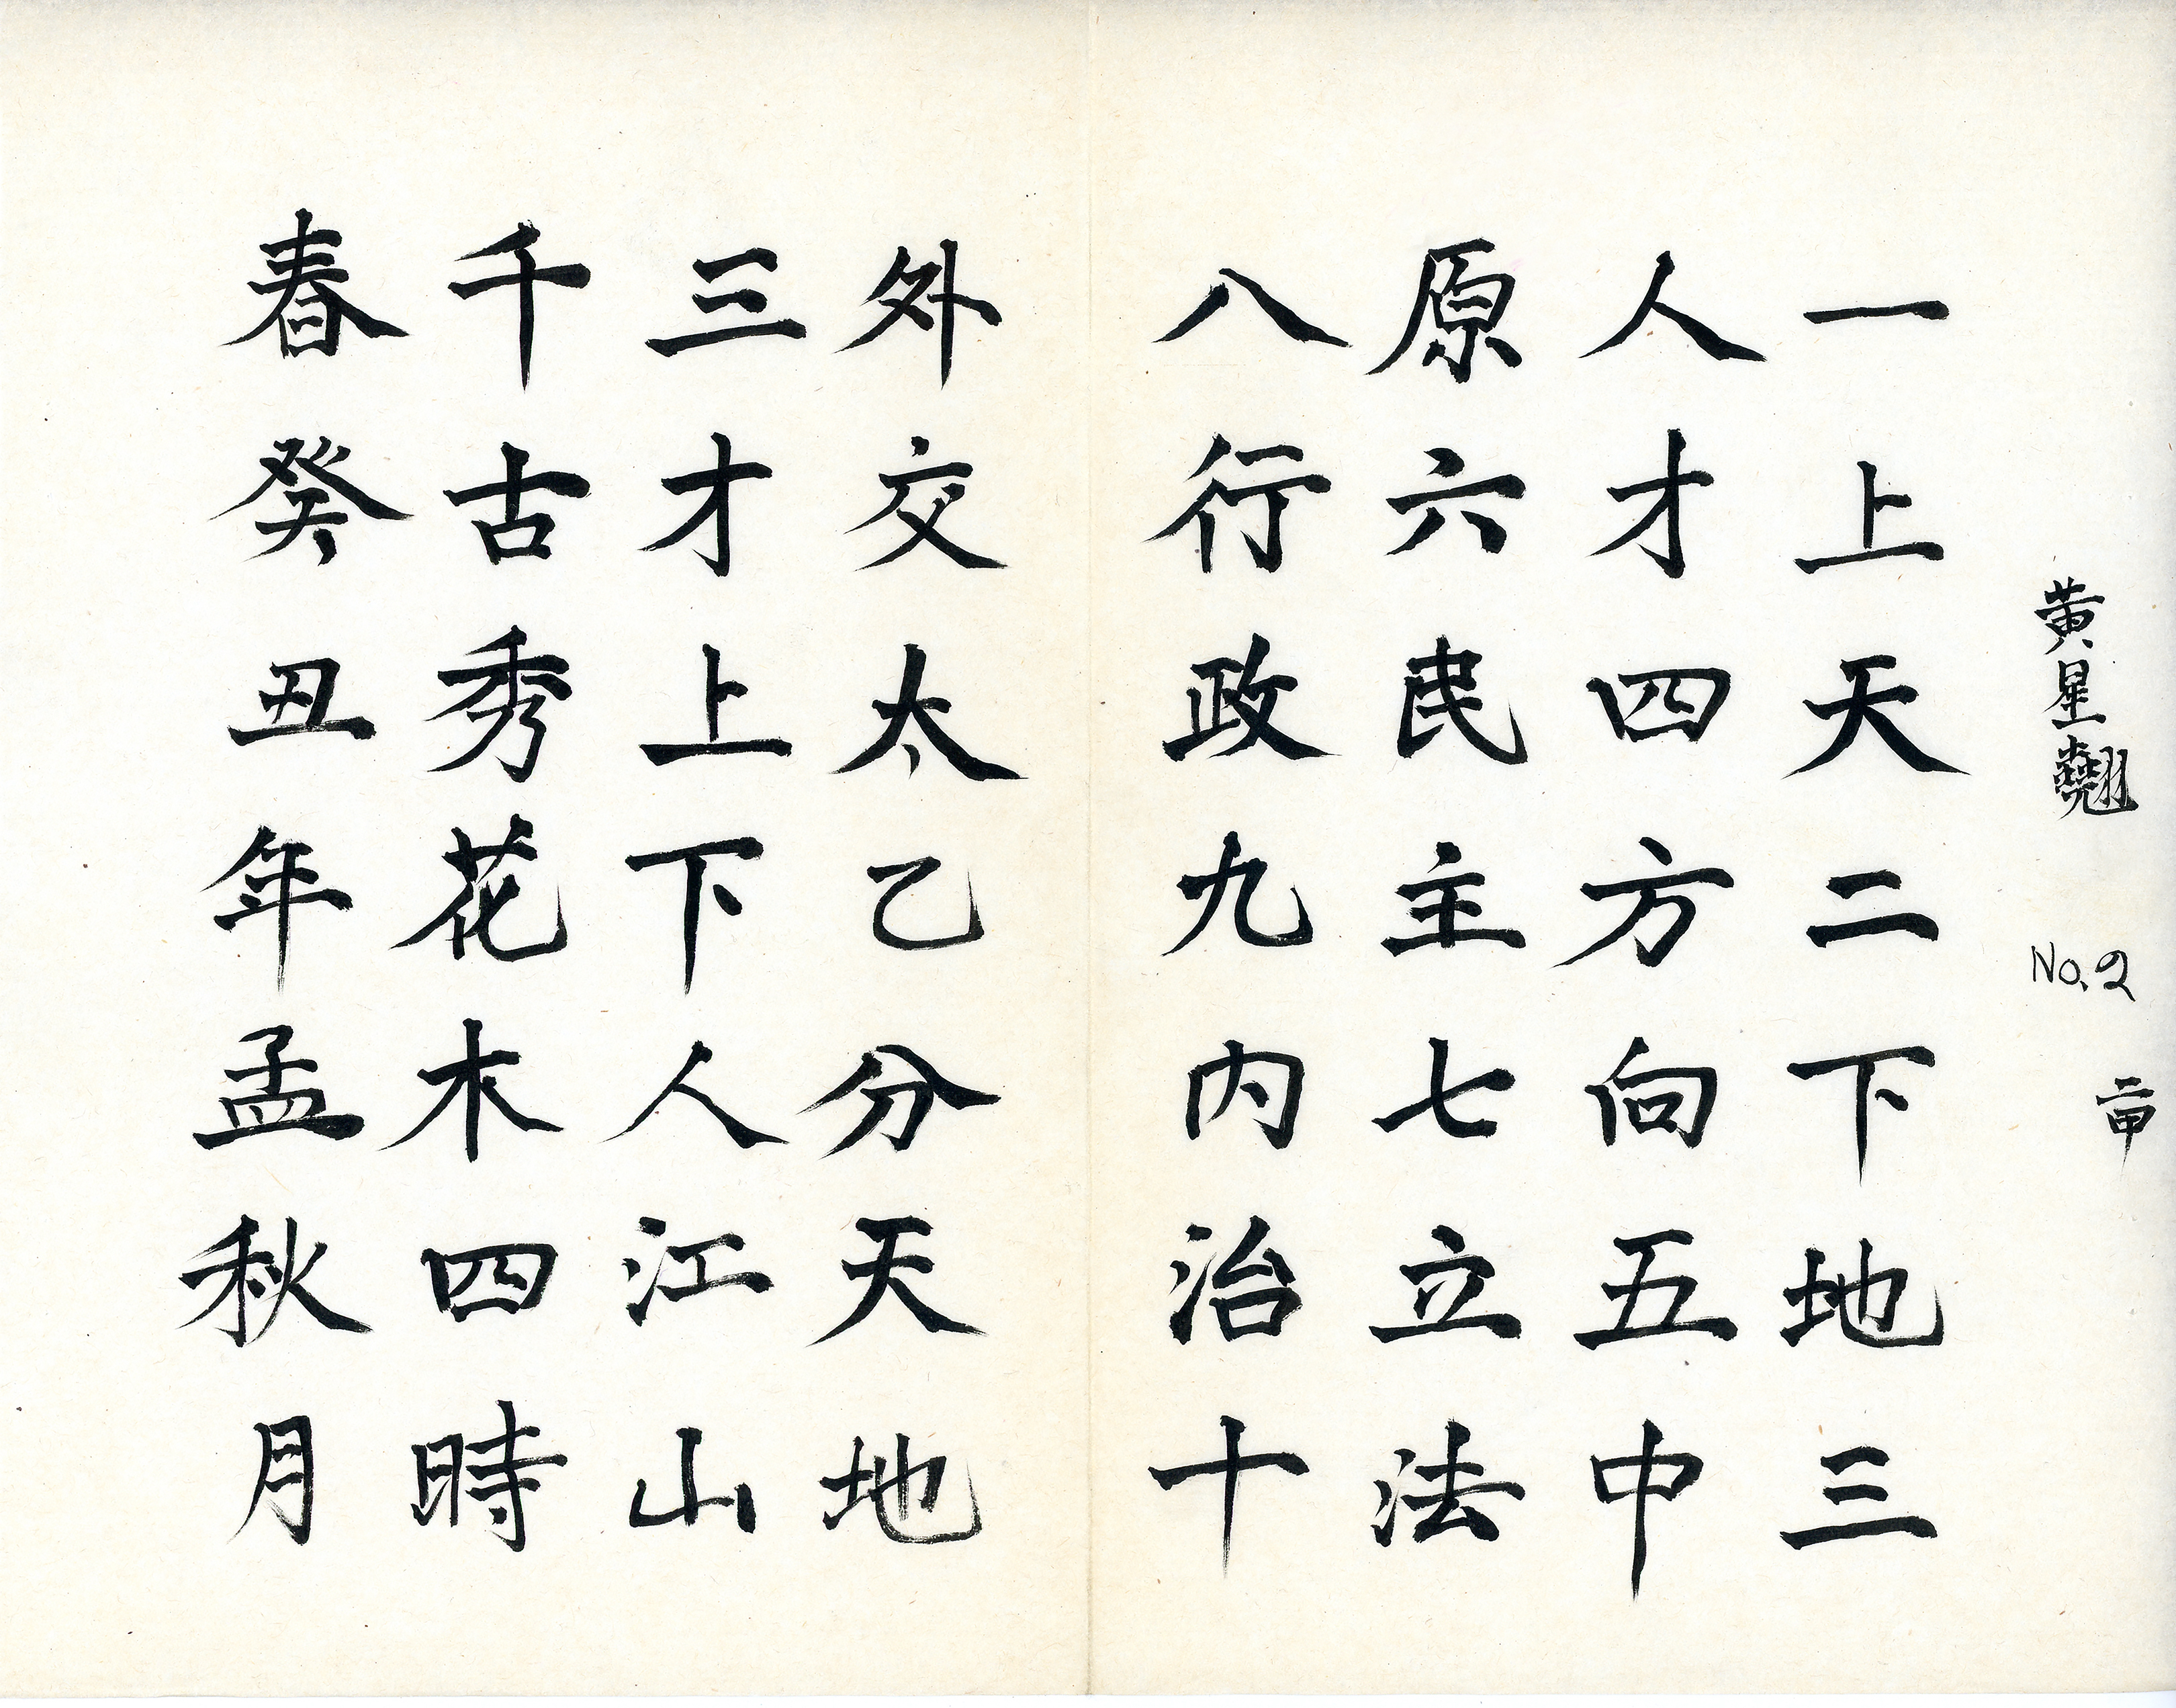 黄星翹 No.2 二甲
一上天二下地三
人才四方向五中
原六民主七立法
八行政九内治十
外交太乙分天地
三才上下人江山
千古秀花木四時
春癸丑年孟秋月